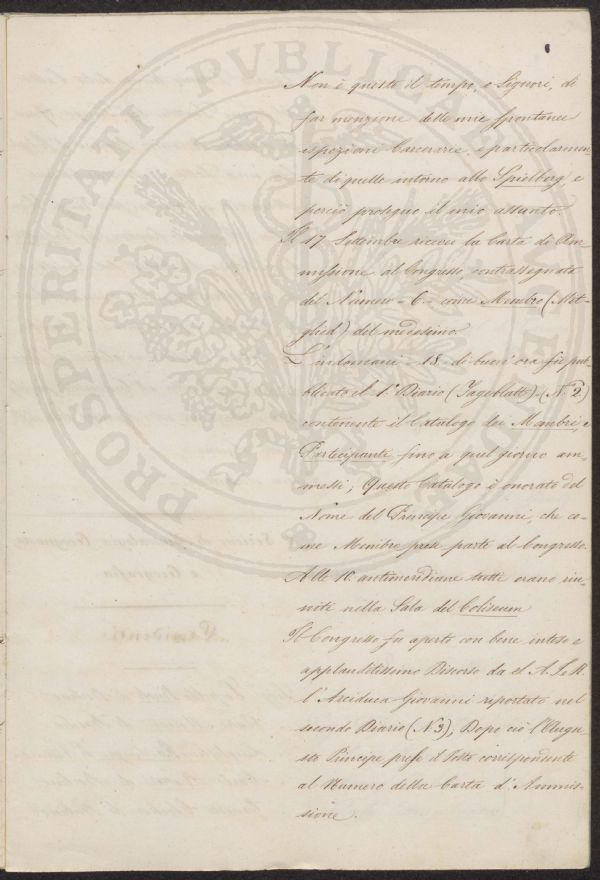 Non è questo il tempo, o Signori, di
far menzione delle mie spontanee
ispezione Carcerarie, e particolarmen
te di quelle intorno allo Spielberg, e
perciò proseguo il mio assunto.
Il 17 Settembre ricevei la Carta di Am
missione al Congresso contrassegnata
del Numero - 6 - come Membro (Mit-
glied) del medesimo.
L'indomani - 18 - di buon'ora fù pub
blicato il 1º Diario (Tageblatt) (N. 2)
contenente il Catalogo dei Membri, e
Participanti fino a quel giorno am
messi; Questo Catalogo è onorato del
Nome del Principe Giovanni, che co
me Membro prese parte al Congresso.
Alle 10 antimeridiane tutti erano riu
niti nella Sala del Coliseum
Il Congresso fu aperto con bene inteso e
applauditissimo Discorso da S. A. I. e R.
l'Arciduca Giovanni riportato nel
secondo Diario (N 3), Dopo ciò l'Augu
sto Principe prese il Posto corrispondente
al Numero della Carta d'Ammis
sione.
PROSPERITATI PVBLICAE